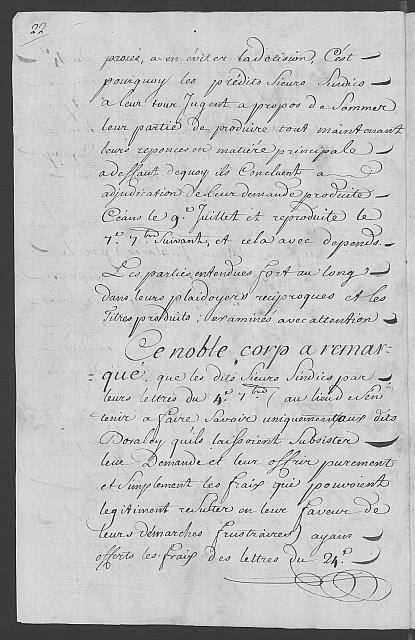 22
proces, a en éviter la decision, C'est
pourquoy les prédits Sieurs Sindics
a leur tour Jugent a propos de Sommer
leur partie de produire tout maintenant
leurs reponces en matiere principale
a deffaut dequoy ils Concluent a
adjudication de leur demande produite
Céans le 9.e Juillet et reproduite le
7.e 7.bre Suivant, et cela avec depends.
Les parties entendues fort au long
dans leurs plaidoyers reciproques et les
Titres produits; examinés avec attention
Ce noble corp a remar-
=que, que les dits Sieurs Sindics par
leurs lettres du 4.e 7.bre / au lieu de S'en
tenir a faire Savoir uniquement aux dits
Doraldy qu'ils laissoient Subsister
leur Demande et leur offrir purement
et Simplement les fraix qui pouvoient
legitimont resulter en leur faveur de
leurs démarches frustraires / ayans
offerts les fraix des lettres du 24.e